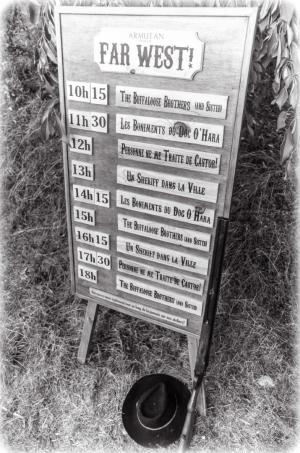 ARMUTAN
FAR WEST!
10h 15 The Buffaloose Brothers (and Sister)
11h 30 Les Boniments du Doc O'Hara
12h Personne ne me Traite de Castor!
13h Un Sheriff dans la Ville
14h 15 Les Boniments du Doc O'Hara
15h The Buffaloose Brothers (and Sister)
16h 15 Un Sheriff dans la Ville
17h 30 Personne ne me Traite de Castor!
18h The Buffaloose Brothers (and Sister)